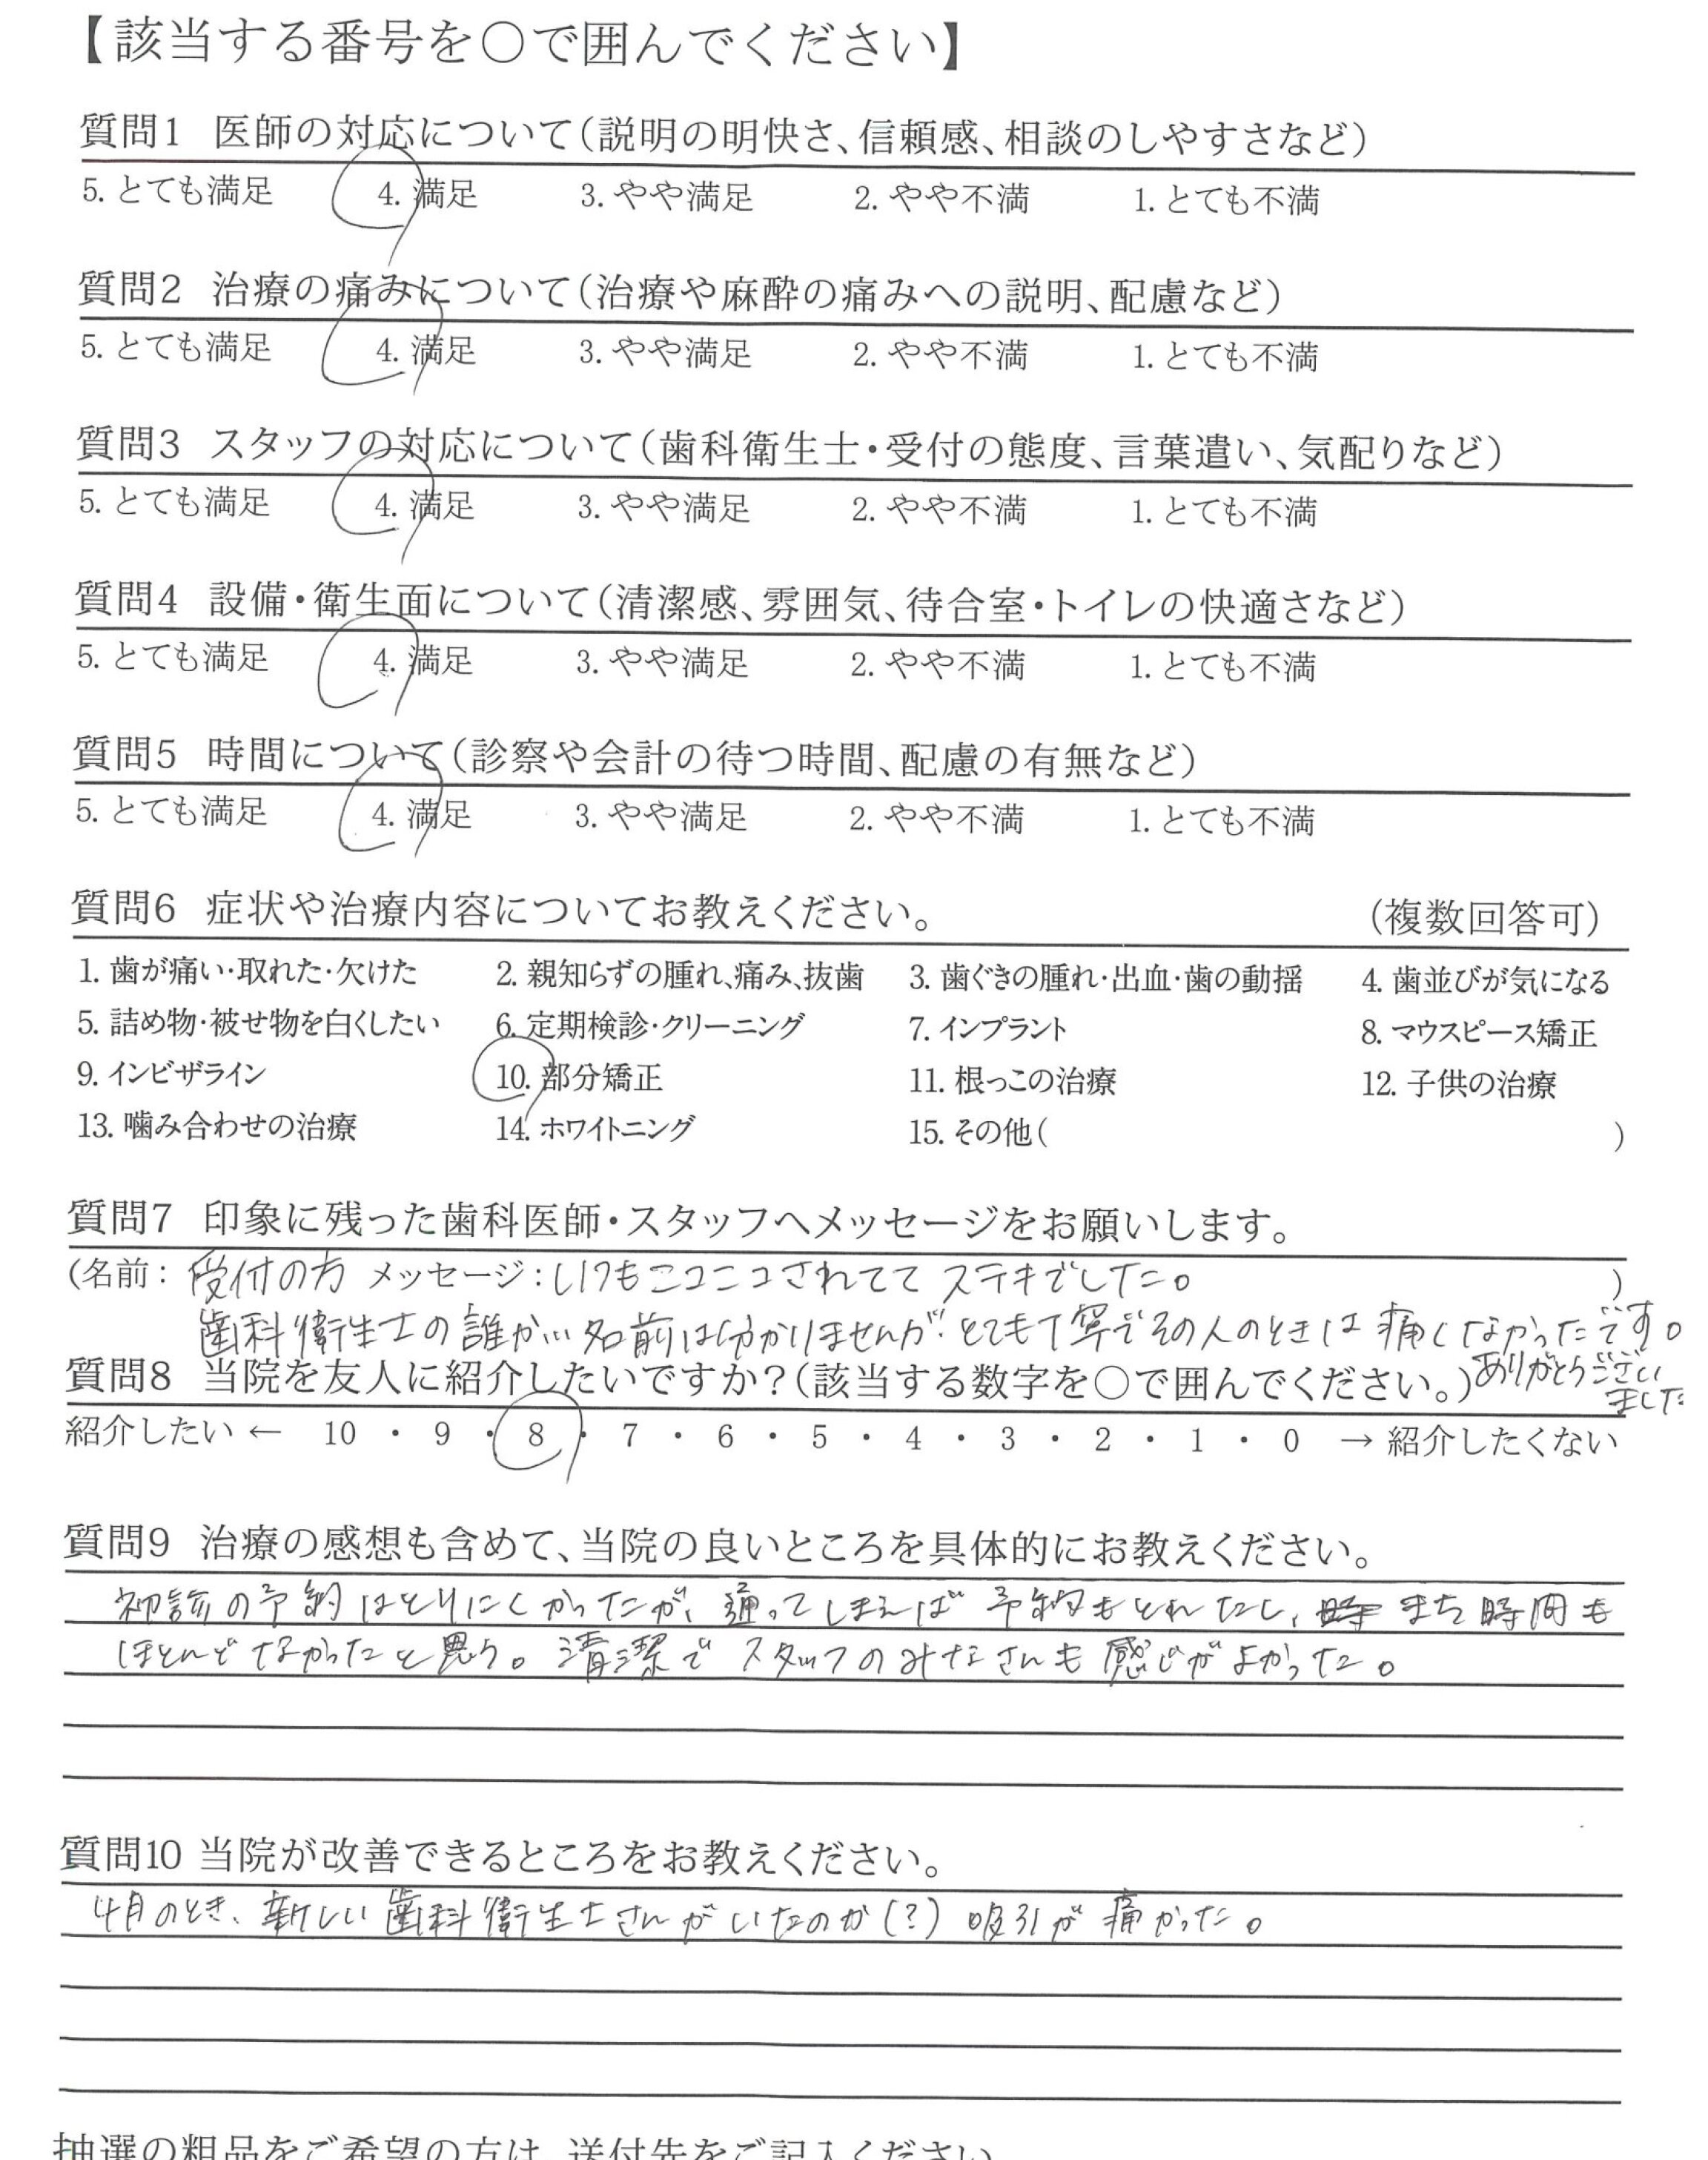 【該当する番号を○で囲んでください】
質問1 医師の対応について(説明の明快さ、信頼感、相談のしやすさなど)
5. とても満足 4. 満足 3. やや満足 2. やや不満 1. とても不満
質問2 治療の痛みについて(治療や麻酔の痛みへの説明、配慮など)
5. とても満足 4. 満足 3. やや満足 2. やや不満 1. とても不満
質問3 スタッフの対応について(歯科衛生士・受付の態度、言葉遣い、気配りなど)
5. とても満足 4. 満足 3. やや満足 2. やや不満 1. とても不満
質問4 設備・衛生面について(清潔感、雰囲気、待合室・トイレの快適さなど)
5. とても満足 4. 満足 3. やや満足 2. やや不満 1. とても不満
質問5 時間について(診察や会計の待つ時間、配慮の有無など)
5. とても満足 4. 満足 3. やや満足 2. やや不満 1. とても不満
質問6 症状や治療内容についてお教えください。 (複数回答可)
1. 歯が痛い・取れた・欠けた 2. 親知らずの腫れ、痛み、抜歯 3. 歯ぐきの腫れ・出血・歯の動揺 4. 歯並びが気になる
5. 詰め物・被せ物を白くしたい 6. 定期検診・クリーニング 7. インプラント 8. マウスピース矯正
9. インビザライン 10. 部分矯正 11. 根っこの治療 12. 子供の治療
13. 噛み合わせの治療 14. ホワイトニング 15. その他( )
質問7 印象に残った歯科医師・スタッフへメッセージをお願いします。
(名前: 受付の方 メッセージ: いつもニコニコされてて ステキでした。 )
歯科衛生士の誰か… 名前は分かりませんが、とても丁寧でその人のときは 痛くなかったです。
ありがとうござい
ました
質問8 当院を友人に紹介したいですか?(該当する数字を○で囲んでください。)
紹介したい ← 10 ・ 9 ・ 8 ・ 7 ・ 6 ・ 5 ・ 4 ・ 3 ・ 2 ・ 1 ・ 0 → 紹介したくない
質問9 治療の感想も含めて、当院の良いところを具体的にお教えください。
初診の予約はとりにくかったが、通ってしまえば 予約もとれたし、まち時間も
ほとんどなかったと思う。清潔で スタッフのみなさんも 感じがよかった。
質問10 当院が改善できるところをお教えください。
4月のとき、新しい歯科衛生士さんがいたのか(?) 吸引が 痛かった。
抽選の粗品をご希望の方は、送付先をご記入ください